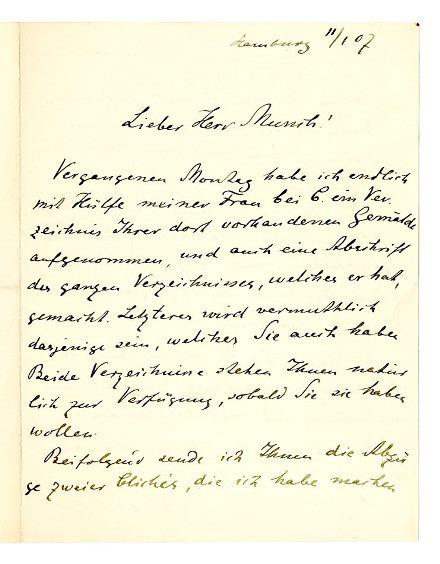 Hamburg 11/1 07
Lieber Herr Munch!
Vergangenen Montag habe ich endlich
mit Hülfe meiner Frau bei C. ein Ver-
zeichnis Ihrer dort vorhandenen Gemälde
aufgenommen, und auch eine Abschrift
des ganzen Verzeichnisses, welches er hat,
gemacht. Letzteres wird vermuthlich
dasjenige sein, welches Sie auch haben
Beide Verzeichnisse stehen Ihnen natür
lich zur Verfügung, sobald Sie sie haben
wollen.
Beifolgend sende ich Ihnen die Abzü
ge zweier Clichés, die ich habe machen